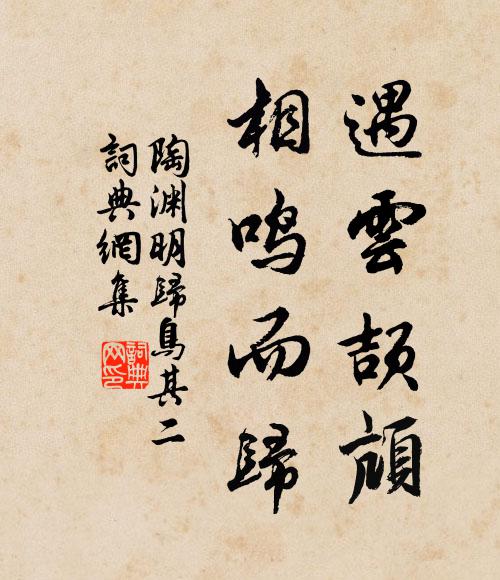 遇雲頡頏
相鳴而歸
陶渊明歸鳥其二
詞典網集
詞典
网印